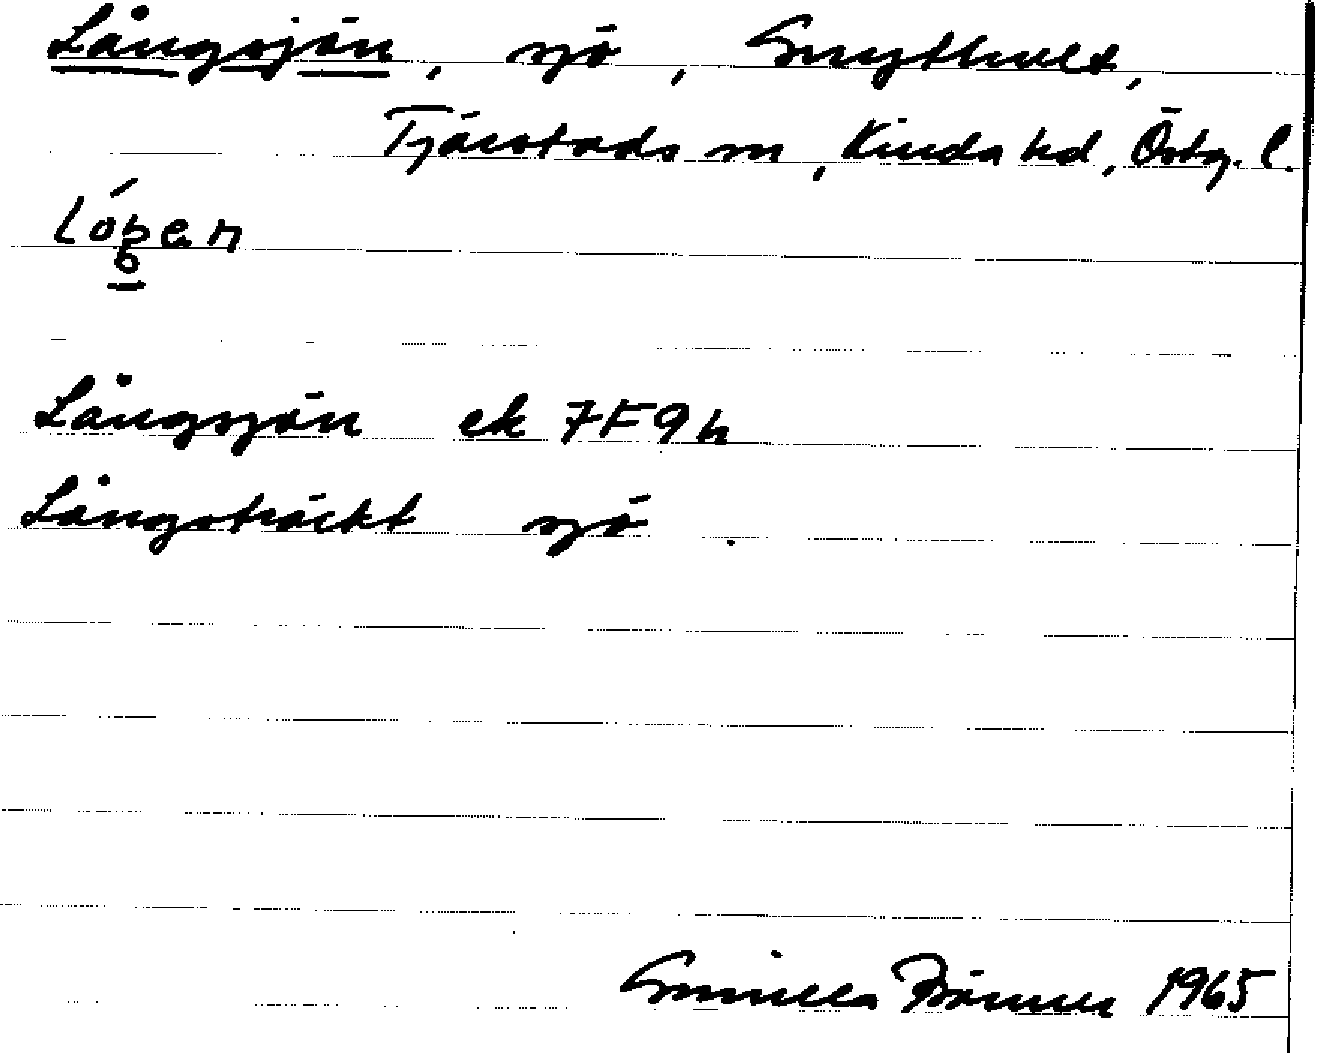 Långsjön, sjö,
Tjärstads sn, Kinda hd, Östg. l.
Långsjön ek 7F9h
Långsträckt sjö.
Gunilla 1965